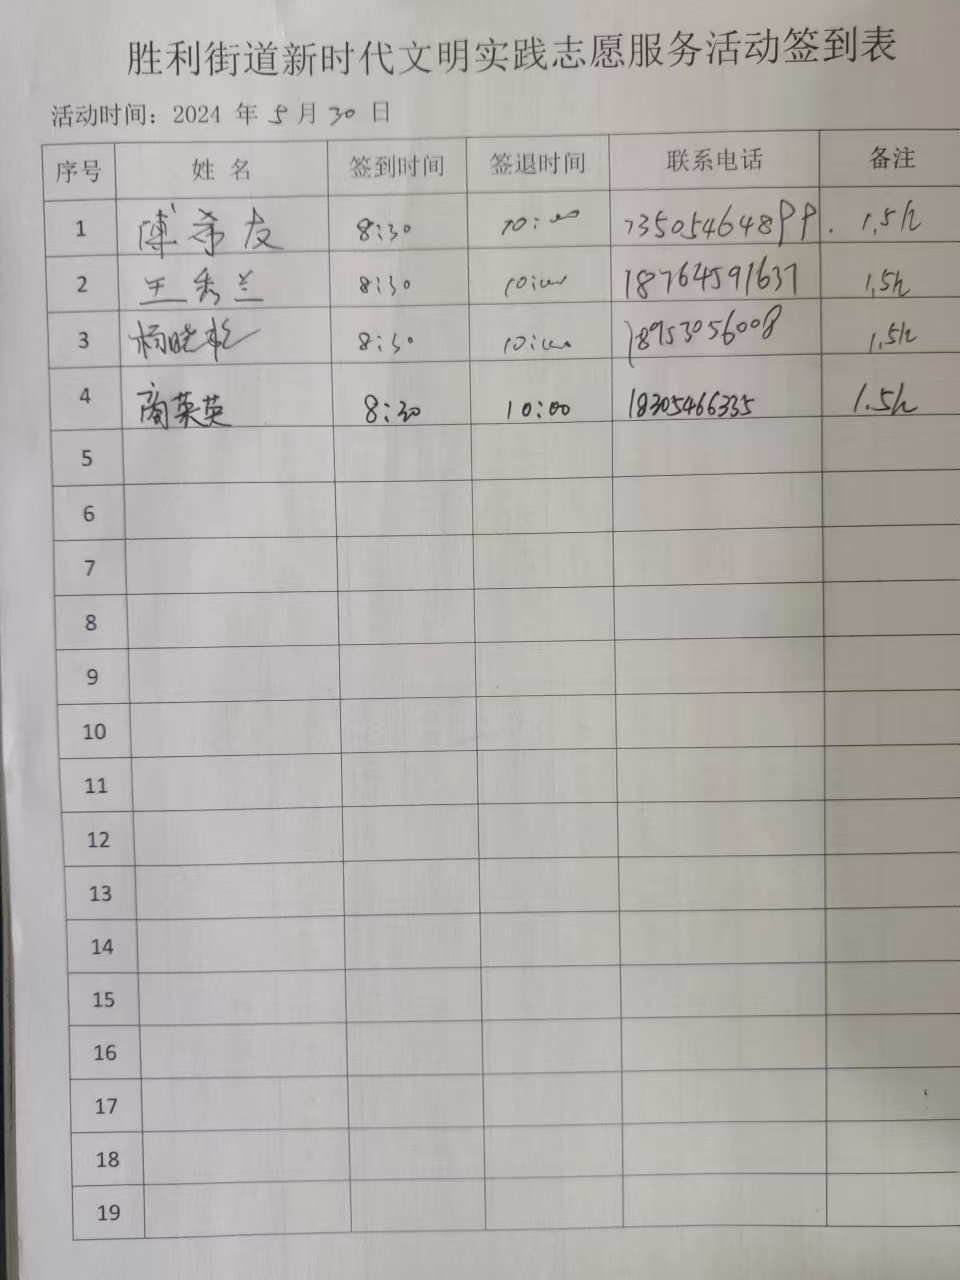 胜利街道新时代文明实践志愿服务活动签到表
活动时间：2024 年 5 月 30 日
序号 姓 名 签到时间 签退时间 联系电话 备注
1 傅希友 8:30 10:00 13505464899. 1.5h
2 王秀兰 8:30 10:00 18764591637 1.5h
3 杨晓松 8:30 10:00 18953056008 1.5h
4 商荣英 8:30 10:00 18305466335 1.5h
5
6
7
8
9
10
11
12
13
14
15
16
17
18
19